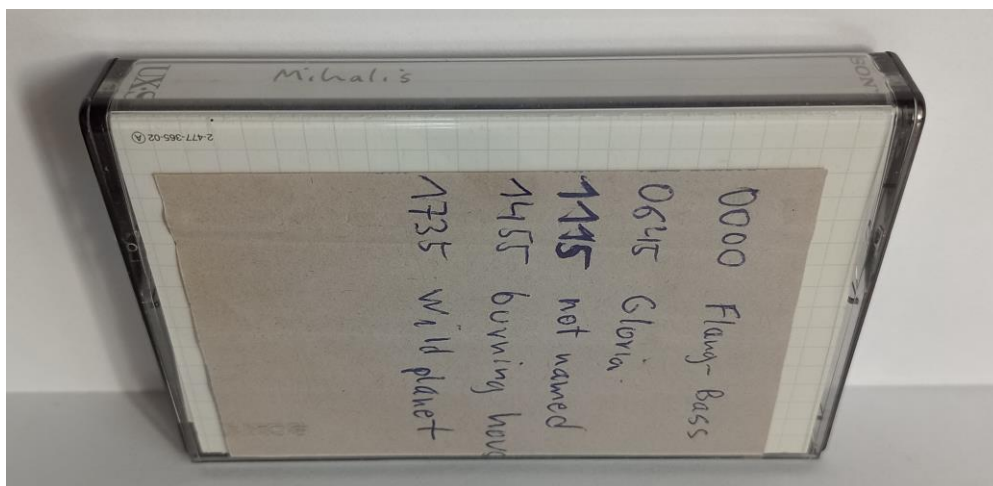 Mihalis
UX-S
SONY
2-477-365-02 A
0000 Flang-Bass
0645 Gloria
1115 not named
1455 burning
1735 wild planet